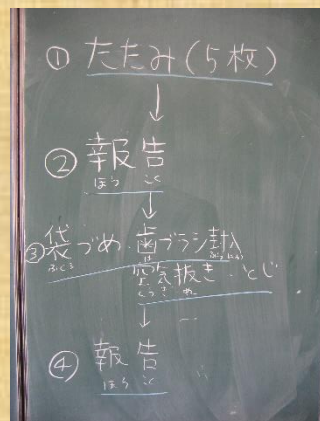 ① たたみ(5枚)
↓
② 報告
ほう こく
↓
③袋づめ・歯ブラシ封入
ふくろ は ふうにゅう
空気抜き・とじ
くうき ぬ
↓
④ 報告
ほう こく